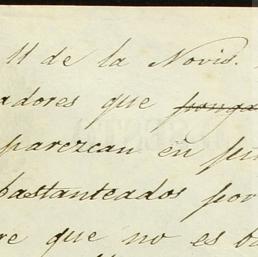 11 de la Novis.
adores que ponga
parezcan en
bastanteados por
re que no es